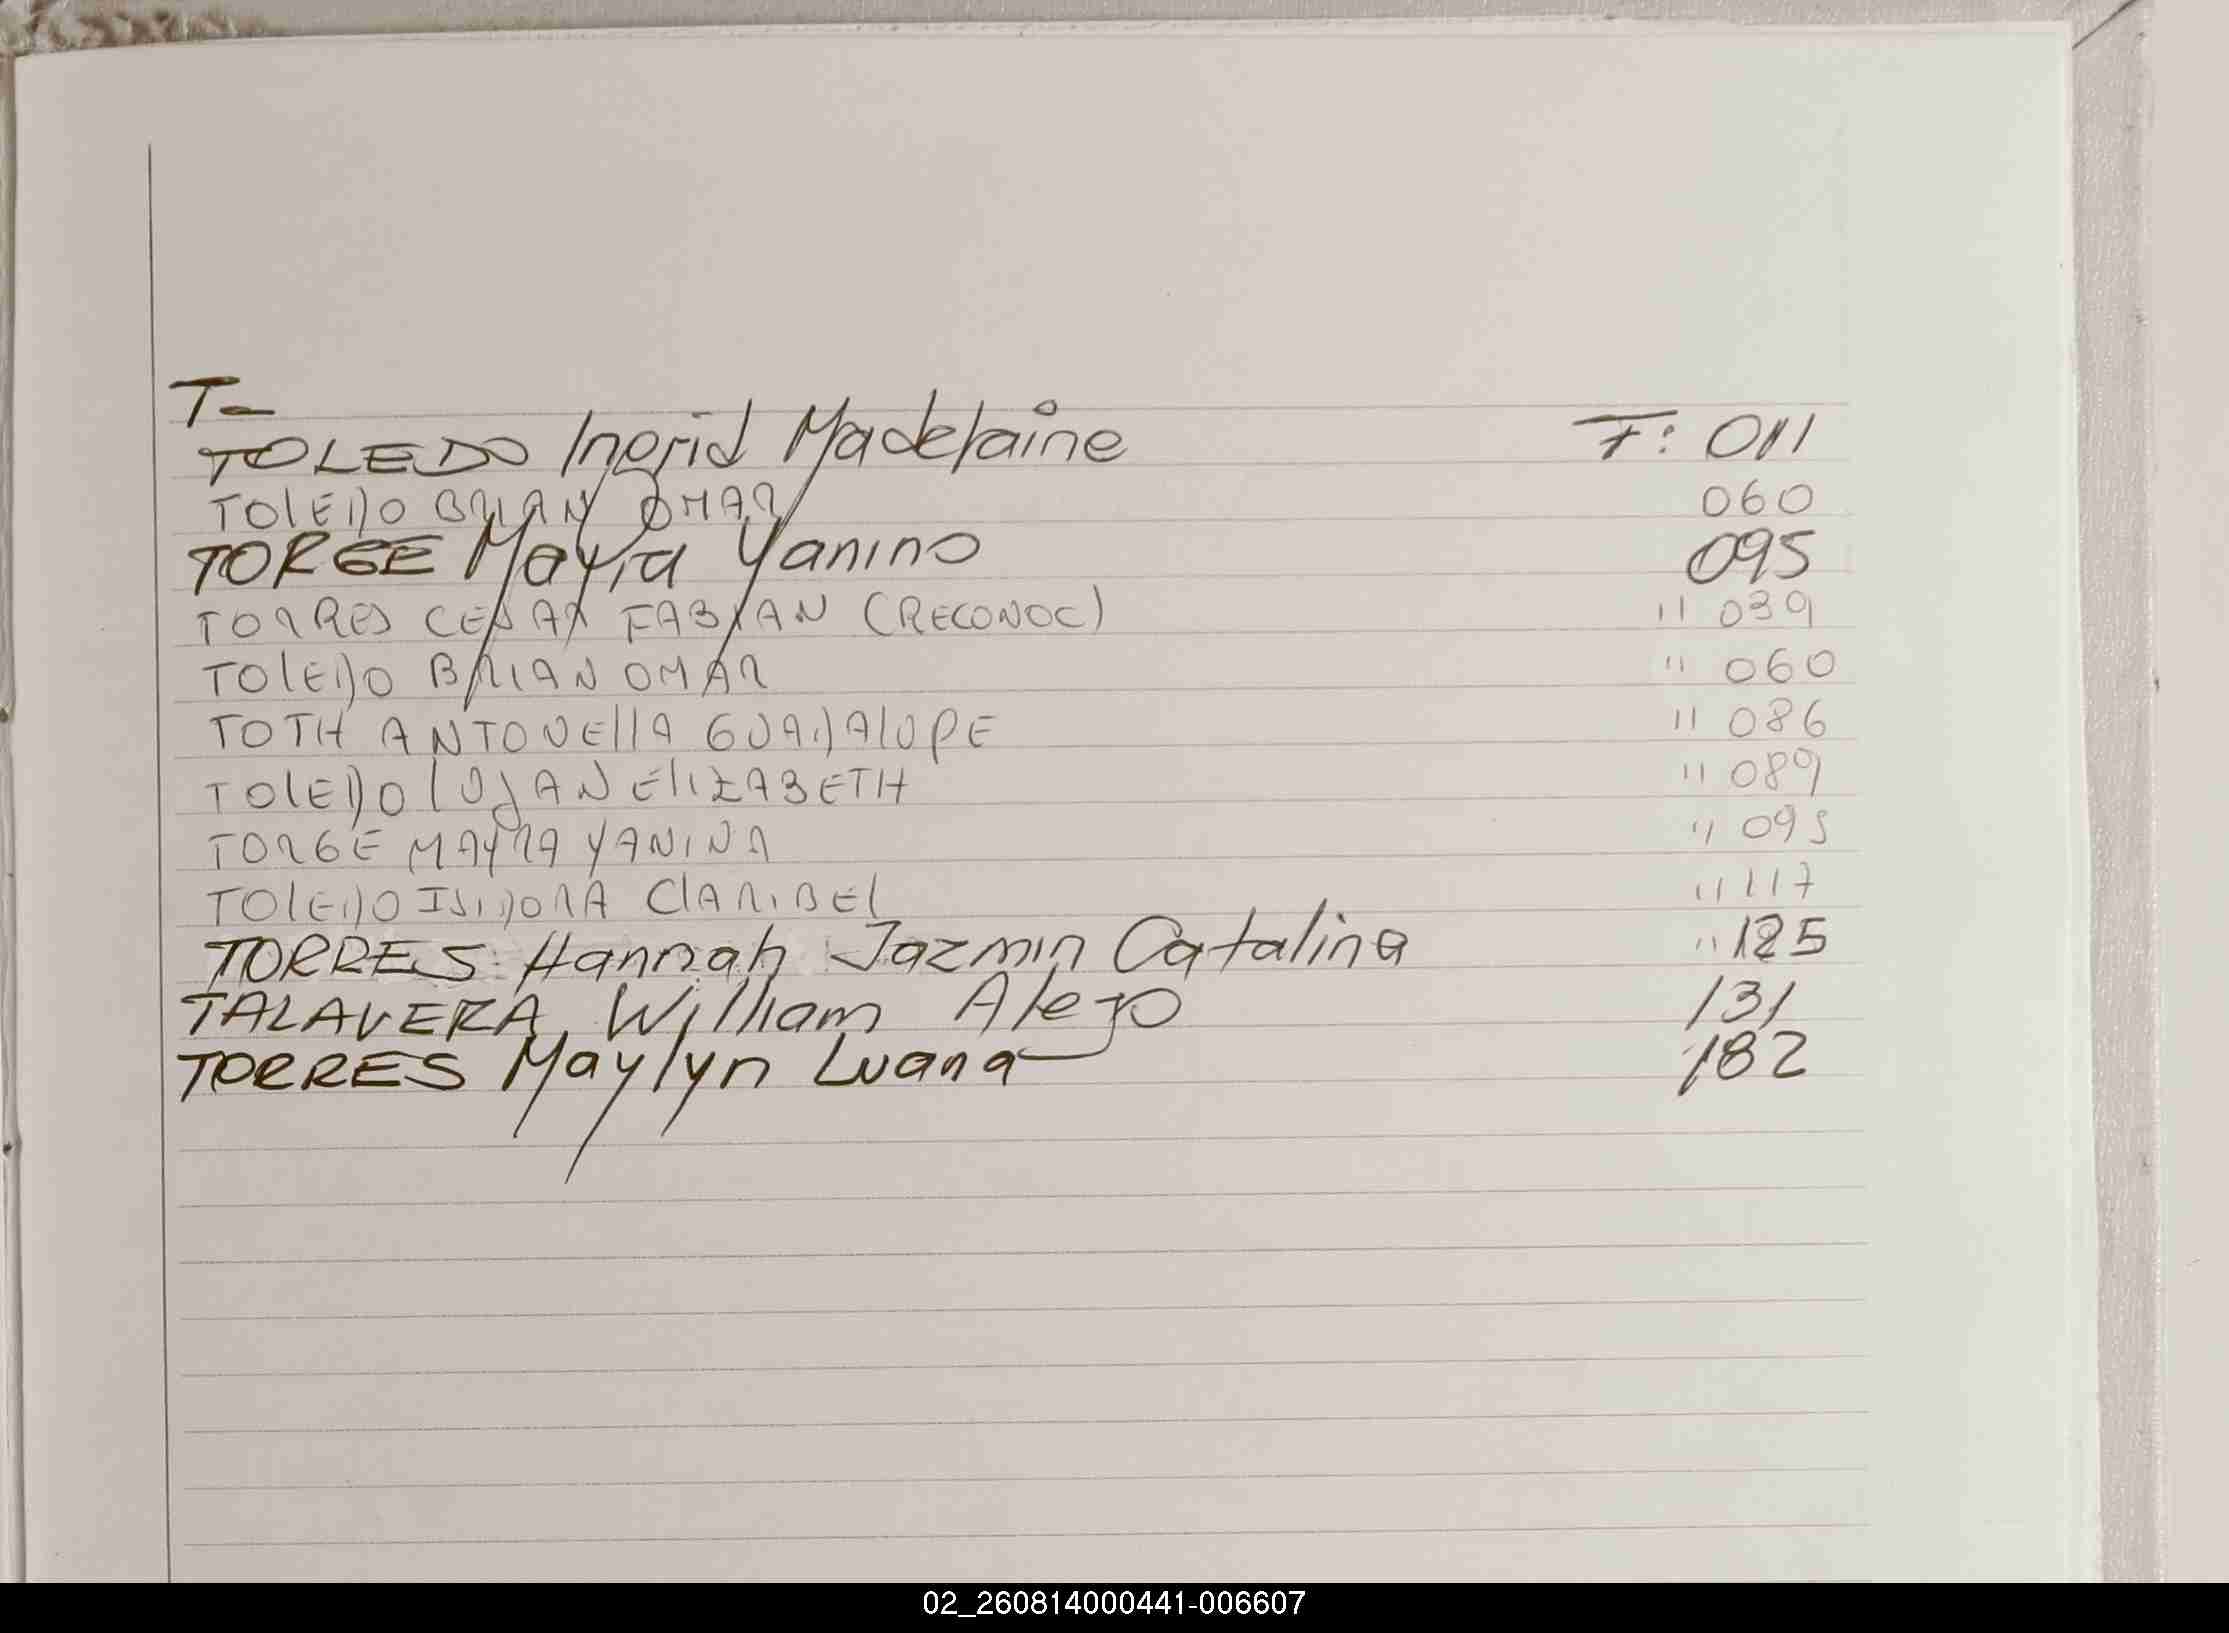 T-
TOLEDO Ingrid Madelaine F: 011
TOLEDO BRIAN OMAR 060
TORGE Mayra Yanina 095
TORRES CESAR FABIAN (RECONOC) " 039
TOLEDO BRIAN OMAR " 060
TOTH ANTONELLA GUADALUPE " 086
TOLEDO LUJAN ELIZABETH " 089
TORGE MAYRA YANINA " 095
TOLEDO ISIDORA CLARIBEL " 117
TORRES Hannah Jazmin Catalina " 125
TALAVERA, William Alejo 131
TORRES Maylyn Luana 182
02_260814000441-006607